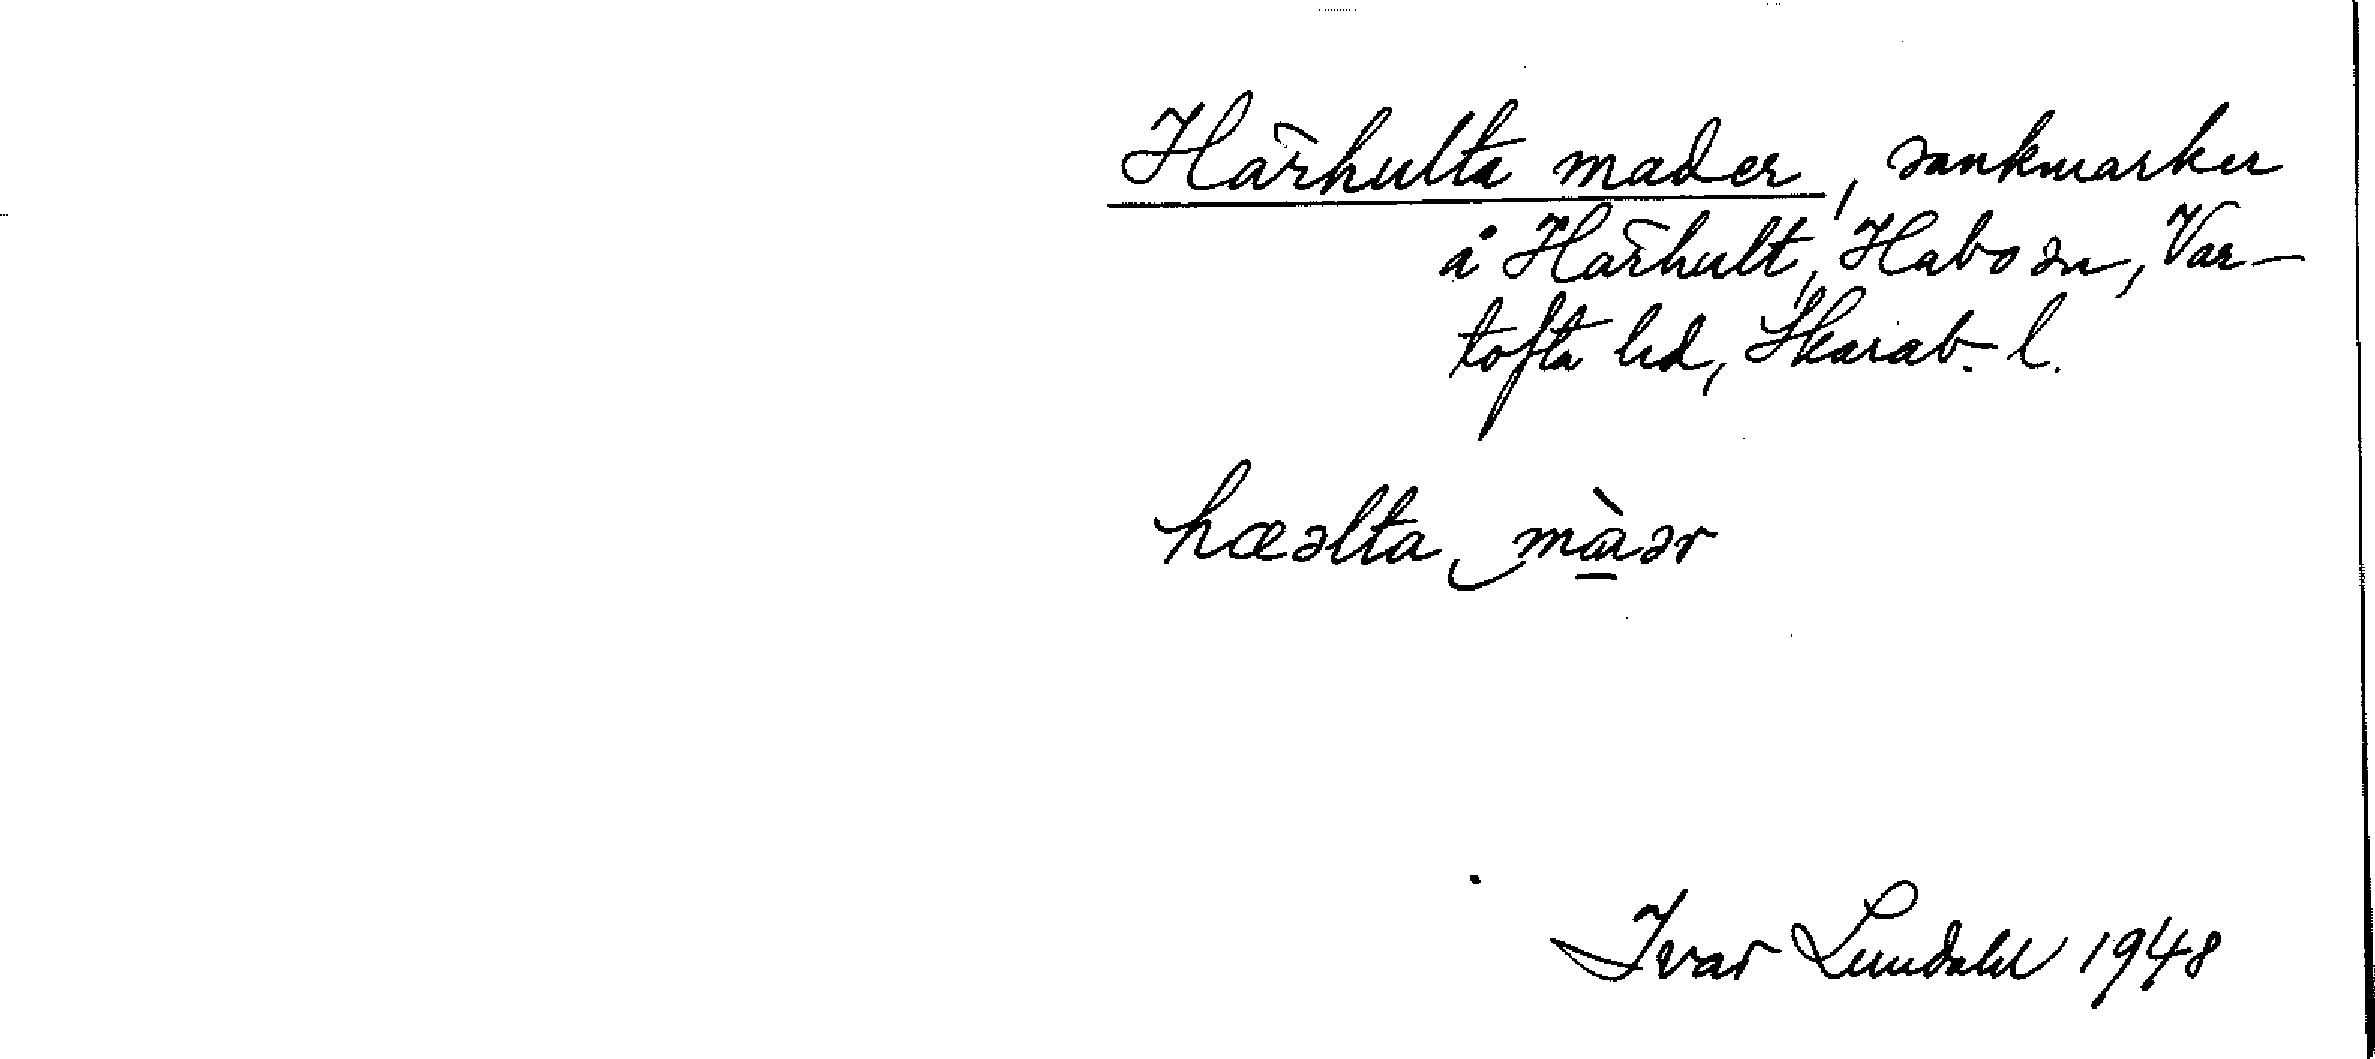 Härhulta mader, sankmarker
å Härhult, Habo sn, Var-
tofta hd, Skarab. l.
hæəlta màər
Ivar Lundahl 1948